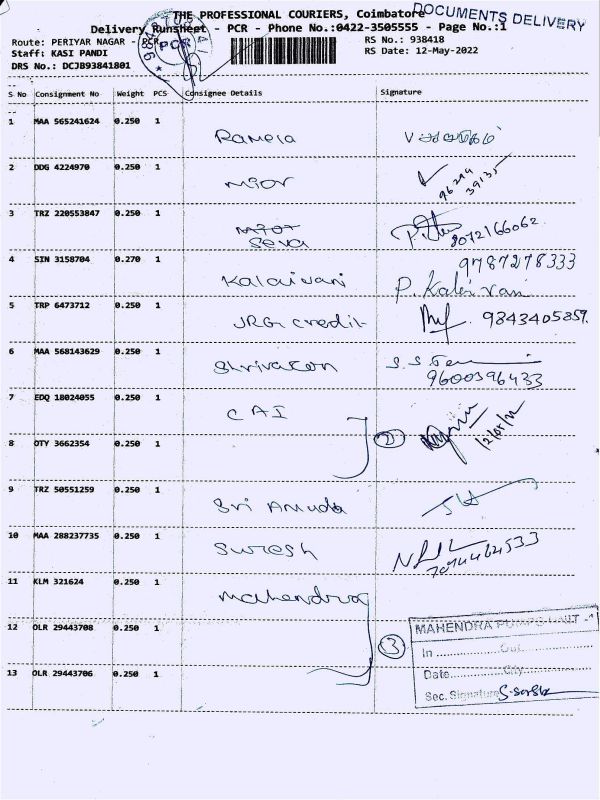 THE PROFESSIONAL COURIERS, Coimbatore
DOCUMENTS DELIVERY
Delivery Runsheet - PCR - Phone No.:0422-3505555 - Page No.:1
Route: PERIYAR NAGAR - PCR RS No.: 938418
Staff: KASI PANDI RS Date: 12-May-2022
DRS No.: DCJB93841801
PCR
S No Consignment No Weight PCS Consignee Details Signature
1 MAA 565241624 0.250 1 Ramela
2 DDG 4224970 0.250 1 Mior
3 TRZ 220553847 0.250 1 Seva 8072166062
4 SIN 3158704 0.270 1 Kalaivani 9787278333
P. Kalaivani
5 TRP 6473712 0.250 1 JRG credit 9843405859
6 MAA 568143629 0.250 1 9600396433
7 EDQ 18024055 0.250 1 CAI
2 12/05/22
8 OTY 3662354 0.250 1
9 TRZ 50551259 0.250 1 Sri Amuda
10 MAA 288237735 0.250 1 Suresh
11 KLM 321624 0.250 1 Mahendra
12 OLR 29443708 0.250 1 3
MAHENDRA PUMPS UNIT - 1
In Out
Date City
13 OLR 29443706 0.250 1 Sec. Signature